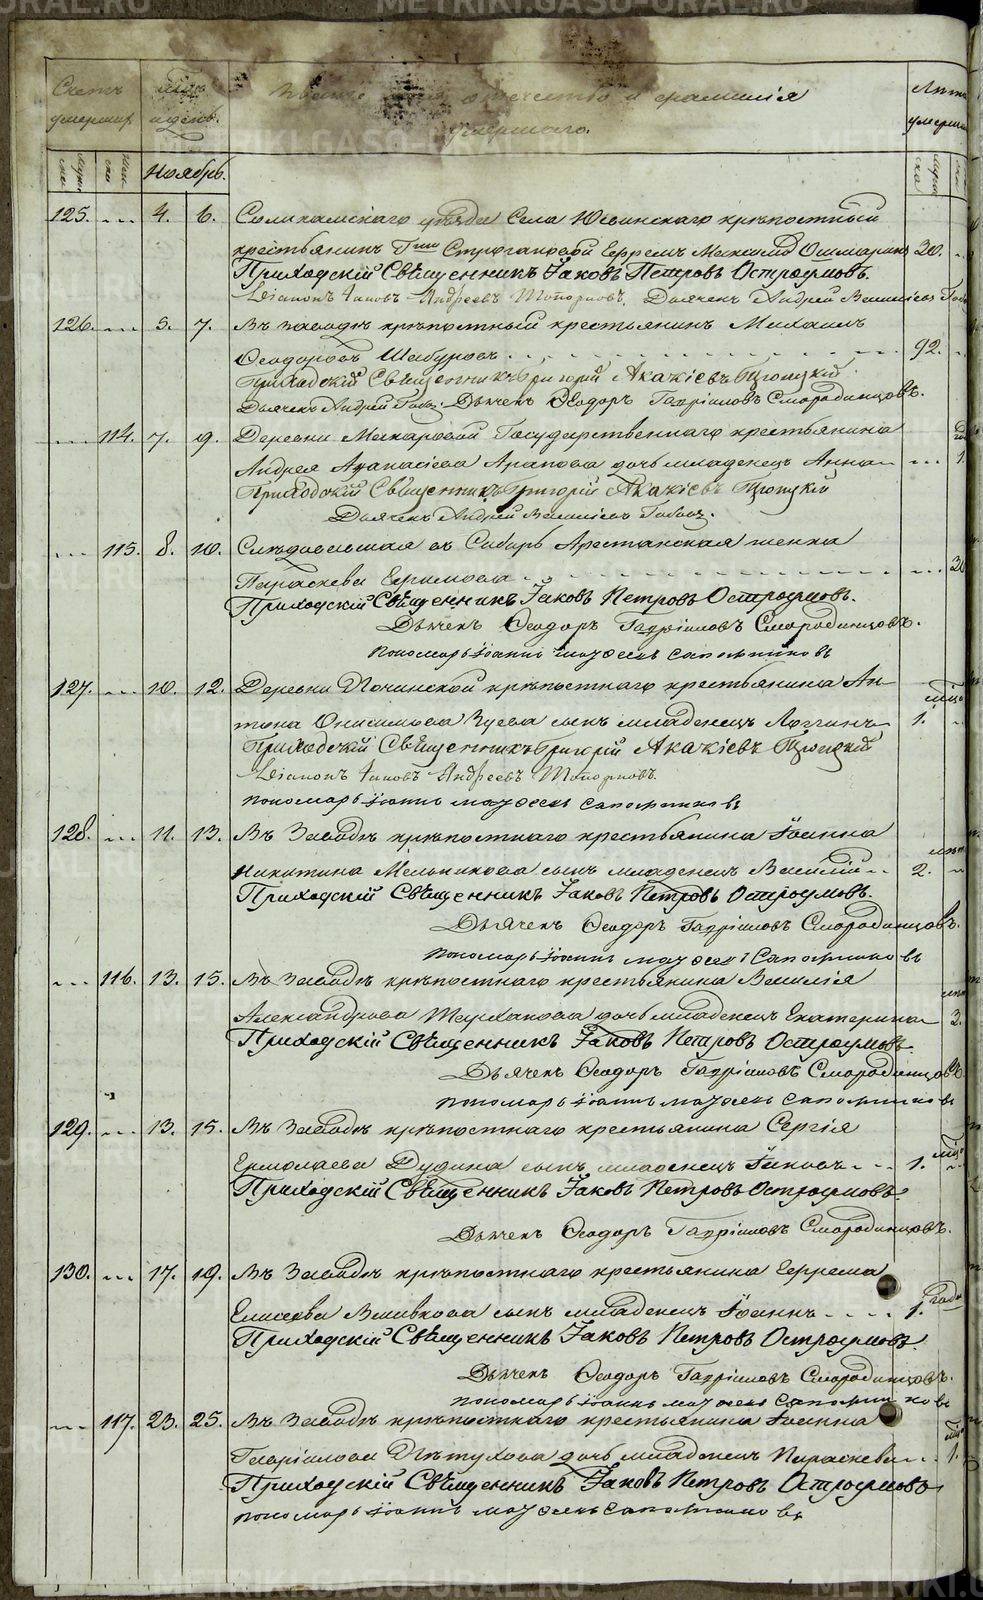 Счетъ умершихъ
Мѣсяцъ и день.
Званіе, имя, отчество и фамилія
умершаго.
Лѣта умершаго
Мужеска. Женска
Ноябрь.
125. 4. 6. Соликамскаго уѣзда Села Юсвинскаго крѣпостный
крестьянинъ Гжи Строгановой Ефремъ 30.
Приходскій Священникъ Іаковъ Петровъ Остроумовъ.
Діаконъ Іаковъ Андреевъ Топорковъ. Дьячекъ Андрей Василіевъ
126. 5. 7. Въ заводѣ крѣпостный крестьянинъ Михаилъ
Ѳеодоровъ Шабуровъ 92.
Приходскій Священникъ Григорій Акакіевъ Троицкій
Дьячекъ Андрей. Дьячекъ Ѳеодоръ Гавріиловъ Смородинцовъ.
114. 7. 9. Деревни Макаровой Государственнаго крестьянина
Андрея Аѳанасіева Арапова дочь младенецъ Анна 1.
Приходскій Священникъ Григорій Акакіевъ Троицкій
Дьячекъ Андрей Василіевъ
115. 8. 10. Слѣдовавшая въ Сибирь Арестанская женка
Параскева Ефимова
Приходскій Священникъ Іаковъ Петровъ Остроумовъ.
Дьячекъ Ѳеодоръ Гавріиловъ Смородинцовъ.
пономарь Іоаннъ Матѳеевъ Сапожниковъ
127. 10. 12. Деревни Починской крѣпостнаго крестьянина Ан-
тона Онисимова Зуева сынъ младенецъ Логгинъ 1.
Приходскій Священникъ Григорій Акакіевъ Троицкій
Діаконъ Іаковъ Андреевъ Топорковъ.
пономарь Іоаннъ Матѳеевъ Сапожниковъ
128. 11. 13. Въ Заводѣ крѣпостнаго крестьянина Іоанна
Никитина Мельникова сынъ младенецъ Василій 2.
Приходскій Священникъ Іаковъ Петровъ Остроумовъ.
Дьячекъ Ѳеодоръ Гавріиловъ Смородинцовъ.
пономарь Іоаннъ Матѳеевъ Сапожниковъ
116. 13. 15. Въ Заводѣ крѣпостнаго крестьянина Василія
Александрова дочь младенецъ Екатерина 3.
Приходскій Священникъ Іаковъ Петровъ Остроумовъ.
Дьячекъ Ѳеодоръ Гавріиловъ Смородинцовъ.
пономарь Іоаннъ Матѳеевъ Сапожниковъ
129. 13. 15. Въ Заводѣ крѣпостнаго крестьянина Сергія
Ермолаева Дудина сынъ младенецъ Іаковъ 1.
Приходскій Священникъ Іаковъ Петровъ Остроумовъ.
Дьячекъ Ѳеодоръ Гавріиловъ Смородинцовъ.
130. 17. 19. Въ Заводѣ крѣпостнаго крестьянина Ефрема
Елисеева Вшивкова сынъ младенецъ Іоаннъ 1. года
Приходскій Священникъ Іаковъ Петровъ Остроумовъ.
Дьячекъ Ѳеодоръ Гавріиловъ Смородинцовъ.
пономарь Іоаннъ Матѳеевъ Сапожниковъ
117. 23. 25. Въ Заводѣ крѣпостнаго крестьянина Іоанна
Гавріилова Пѣтухова дочь младенецъ Параскева 1.
Приходскій Священникъ Іаковъ Петровъ Остроумовъ
пономарь Іоаннъ Матѳеевъ Сапожниковъ
METRIKI.GASO-URAL.RU